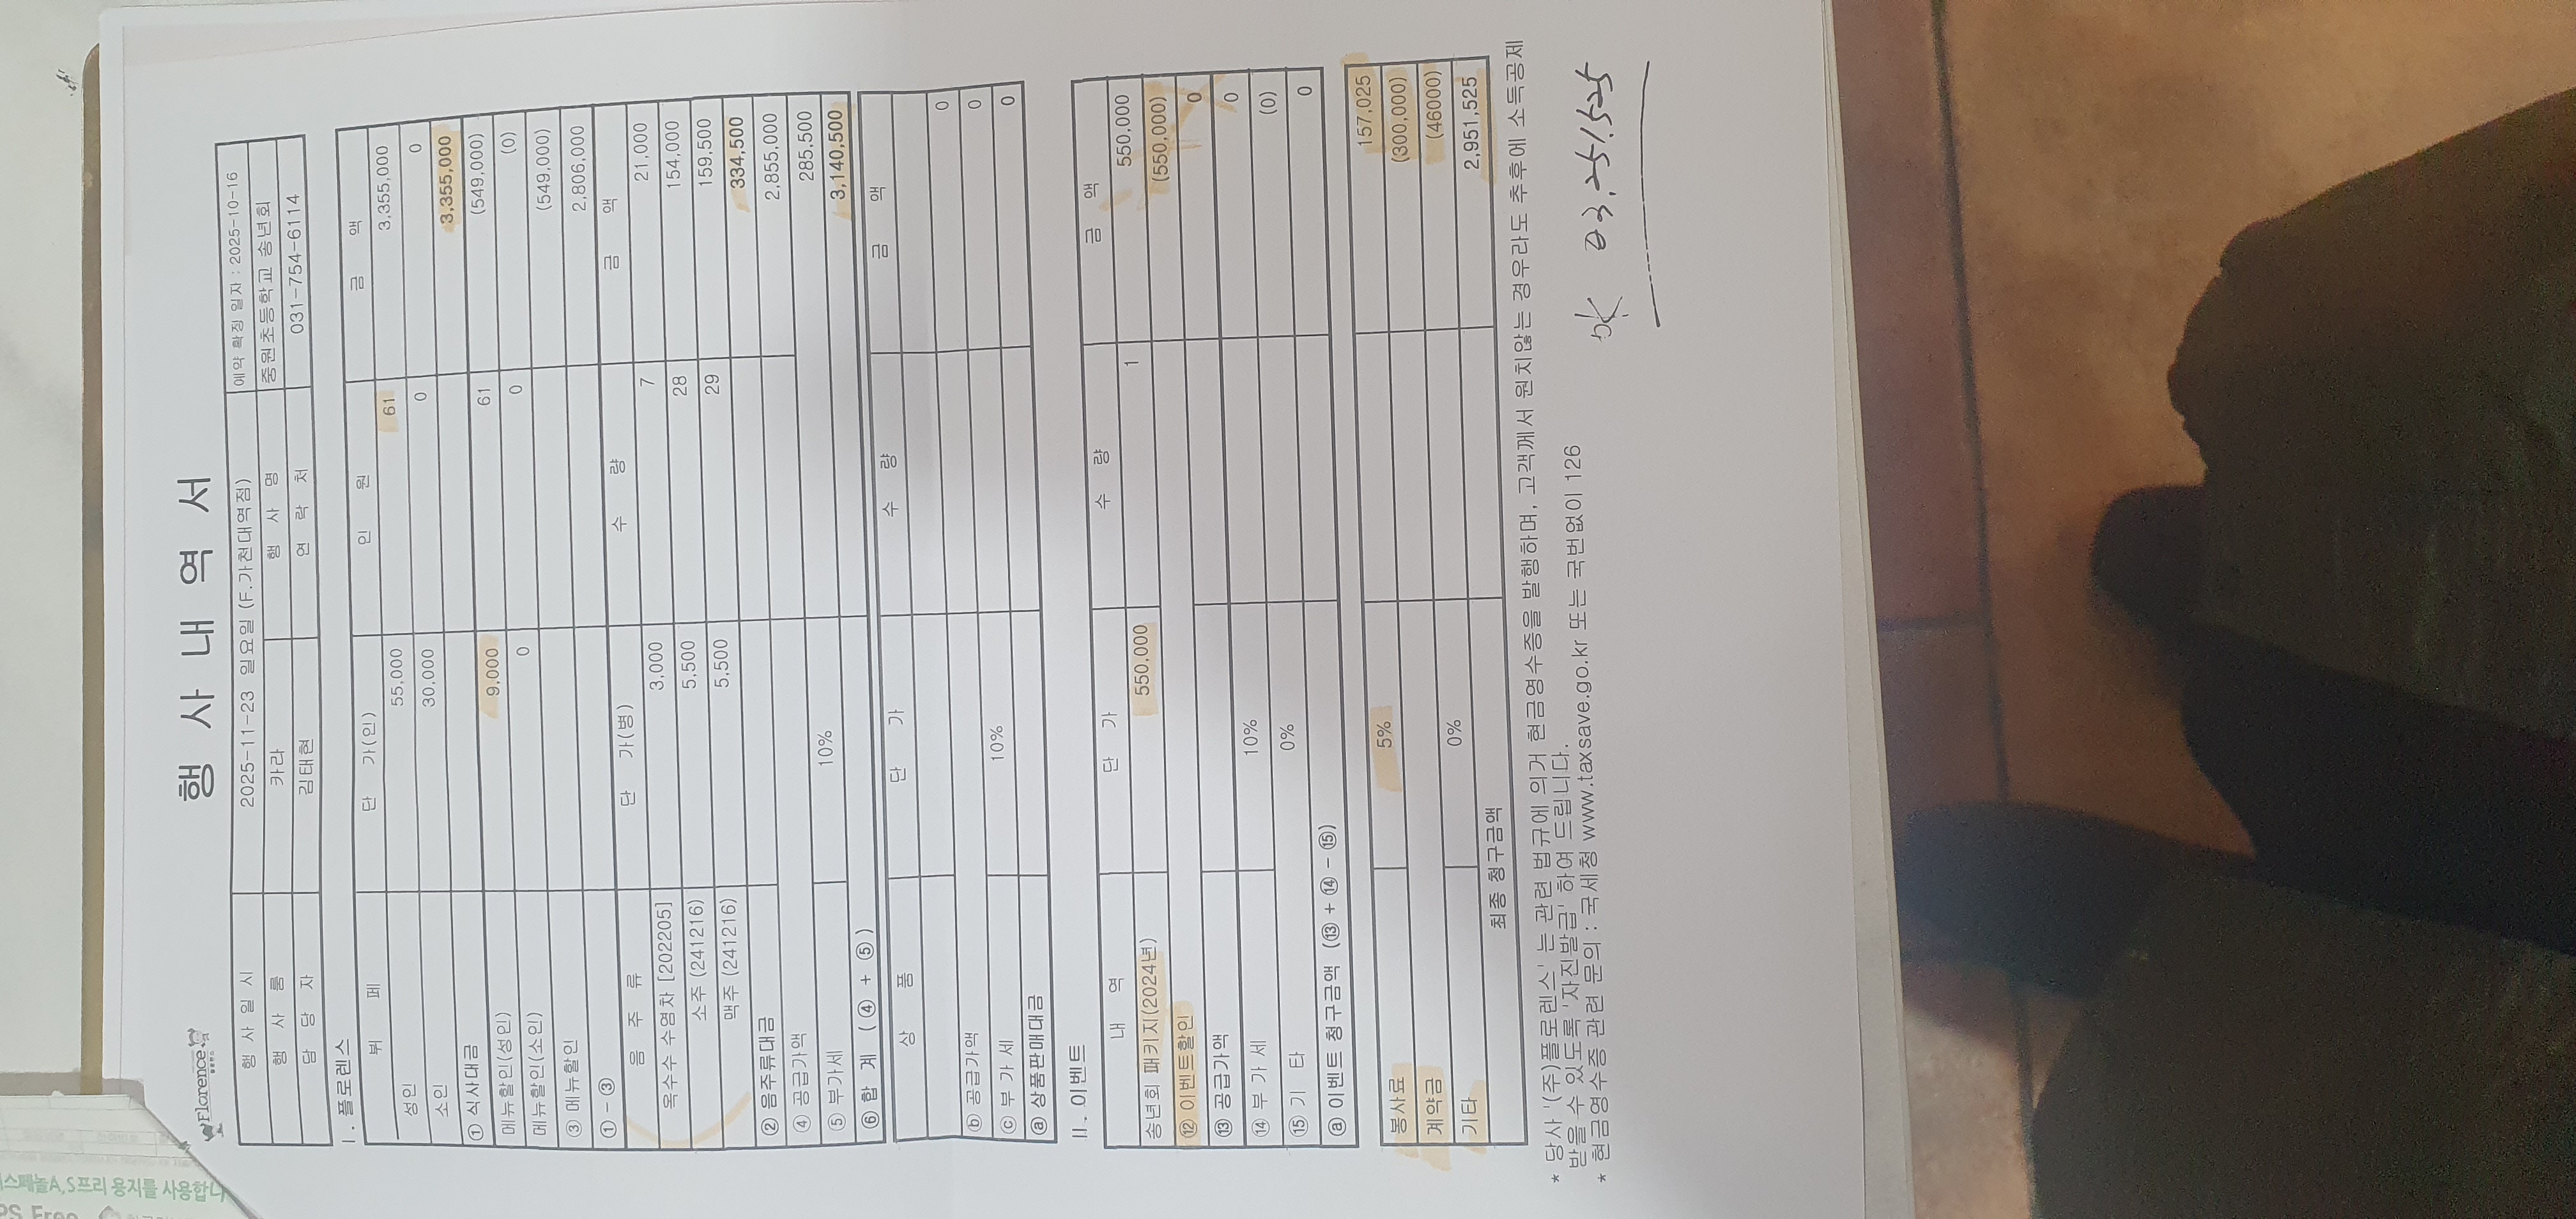 Florence
행 사 내 역 서
행 사 일 시 2025-11-23 일요일 (F.가천대역점) 예약 확정 일자 : 2025-10-16
행 사 룸 카라 행 사 명 중원초등학교 송년회
담 당 자 김태현 연 락 처 031-754-6114
Ⅰ. 플로렌스
뷔 페 단 가(인) 인 원 금 액
성인 55,000 61 3,355,000
소인 30,000 0 0
① 식사대금 3,355,000
메뉴할인(성인) 9,000 61 (549,000)
메뉴할인(소인) 0 0 (0)
③ 메뉴할인 (549,000)
① - ③ 2,806,000
음 주 류 단 가(병) 수 량 금 액
옥수수 수염차 [202205] 3,000 7 21,000
소주 (241216) 5,500 28 154,000
맥주 (241216) 5,500 29 159,500
② 음주류대금 334,500
④ 공급가액 2,855,000
⑤ 부가세 10% 285,500
⑥ 합 계 ( ④ + ⑤ ) 3,140,500
상 품 단 가 수 량 금 액
0
ⓑ 공급가액 0
ⓒ 부 가 세 10% 0
ⓐ 상품판매대금
Ⅱ. 이벤트
내 역 단 가 수 량 금 액
송년회 패키지(2024년) 550,000 1 550,000
⑫ 이벤트할인 (550,000)
⑬ 공급가액 0
⑭ 부 가 세 10% 0
⑮ 기 타 0% (0)
ⓐ 이벤트 청구금액 (⑬ + ⑭ - ⑮) 0
봉사료 5% 157,025
계약금 (300,000)
기타 0% (46000)
최종 청구금액 2,951,525
* 당사 '(주)플로렌스' 는 관련 법규에 의거 현금영수증을 발행하며, 고객께서 원치않는 경우라도 추후에 소득공제
받을수 있도록 '자진발급' 하여 드립니다.
* 현금영수증 관련 문의 : 국세청 www.taxsave.go.kr 또는 국번없이 126
스페놀A,S프리 용지를 사용합니
PS Free